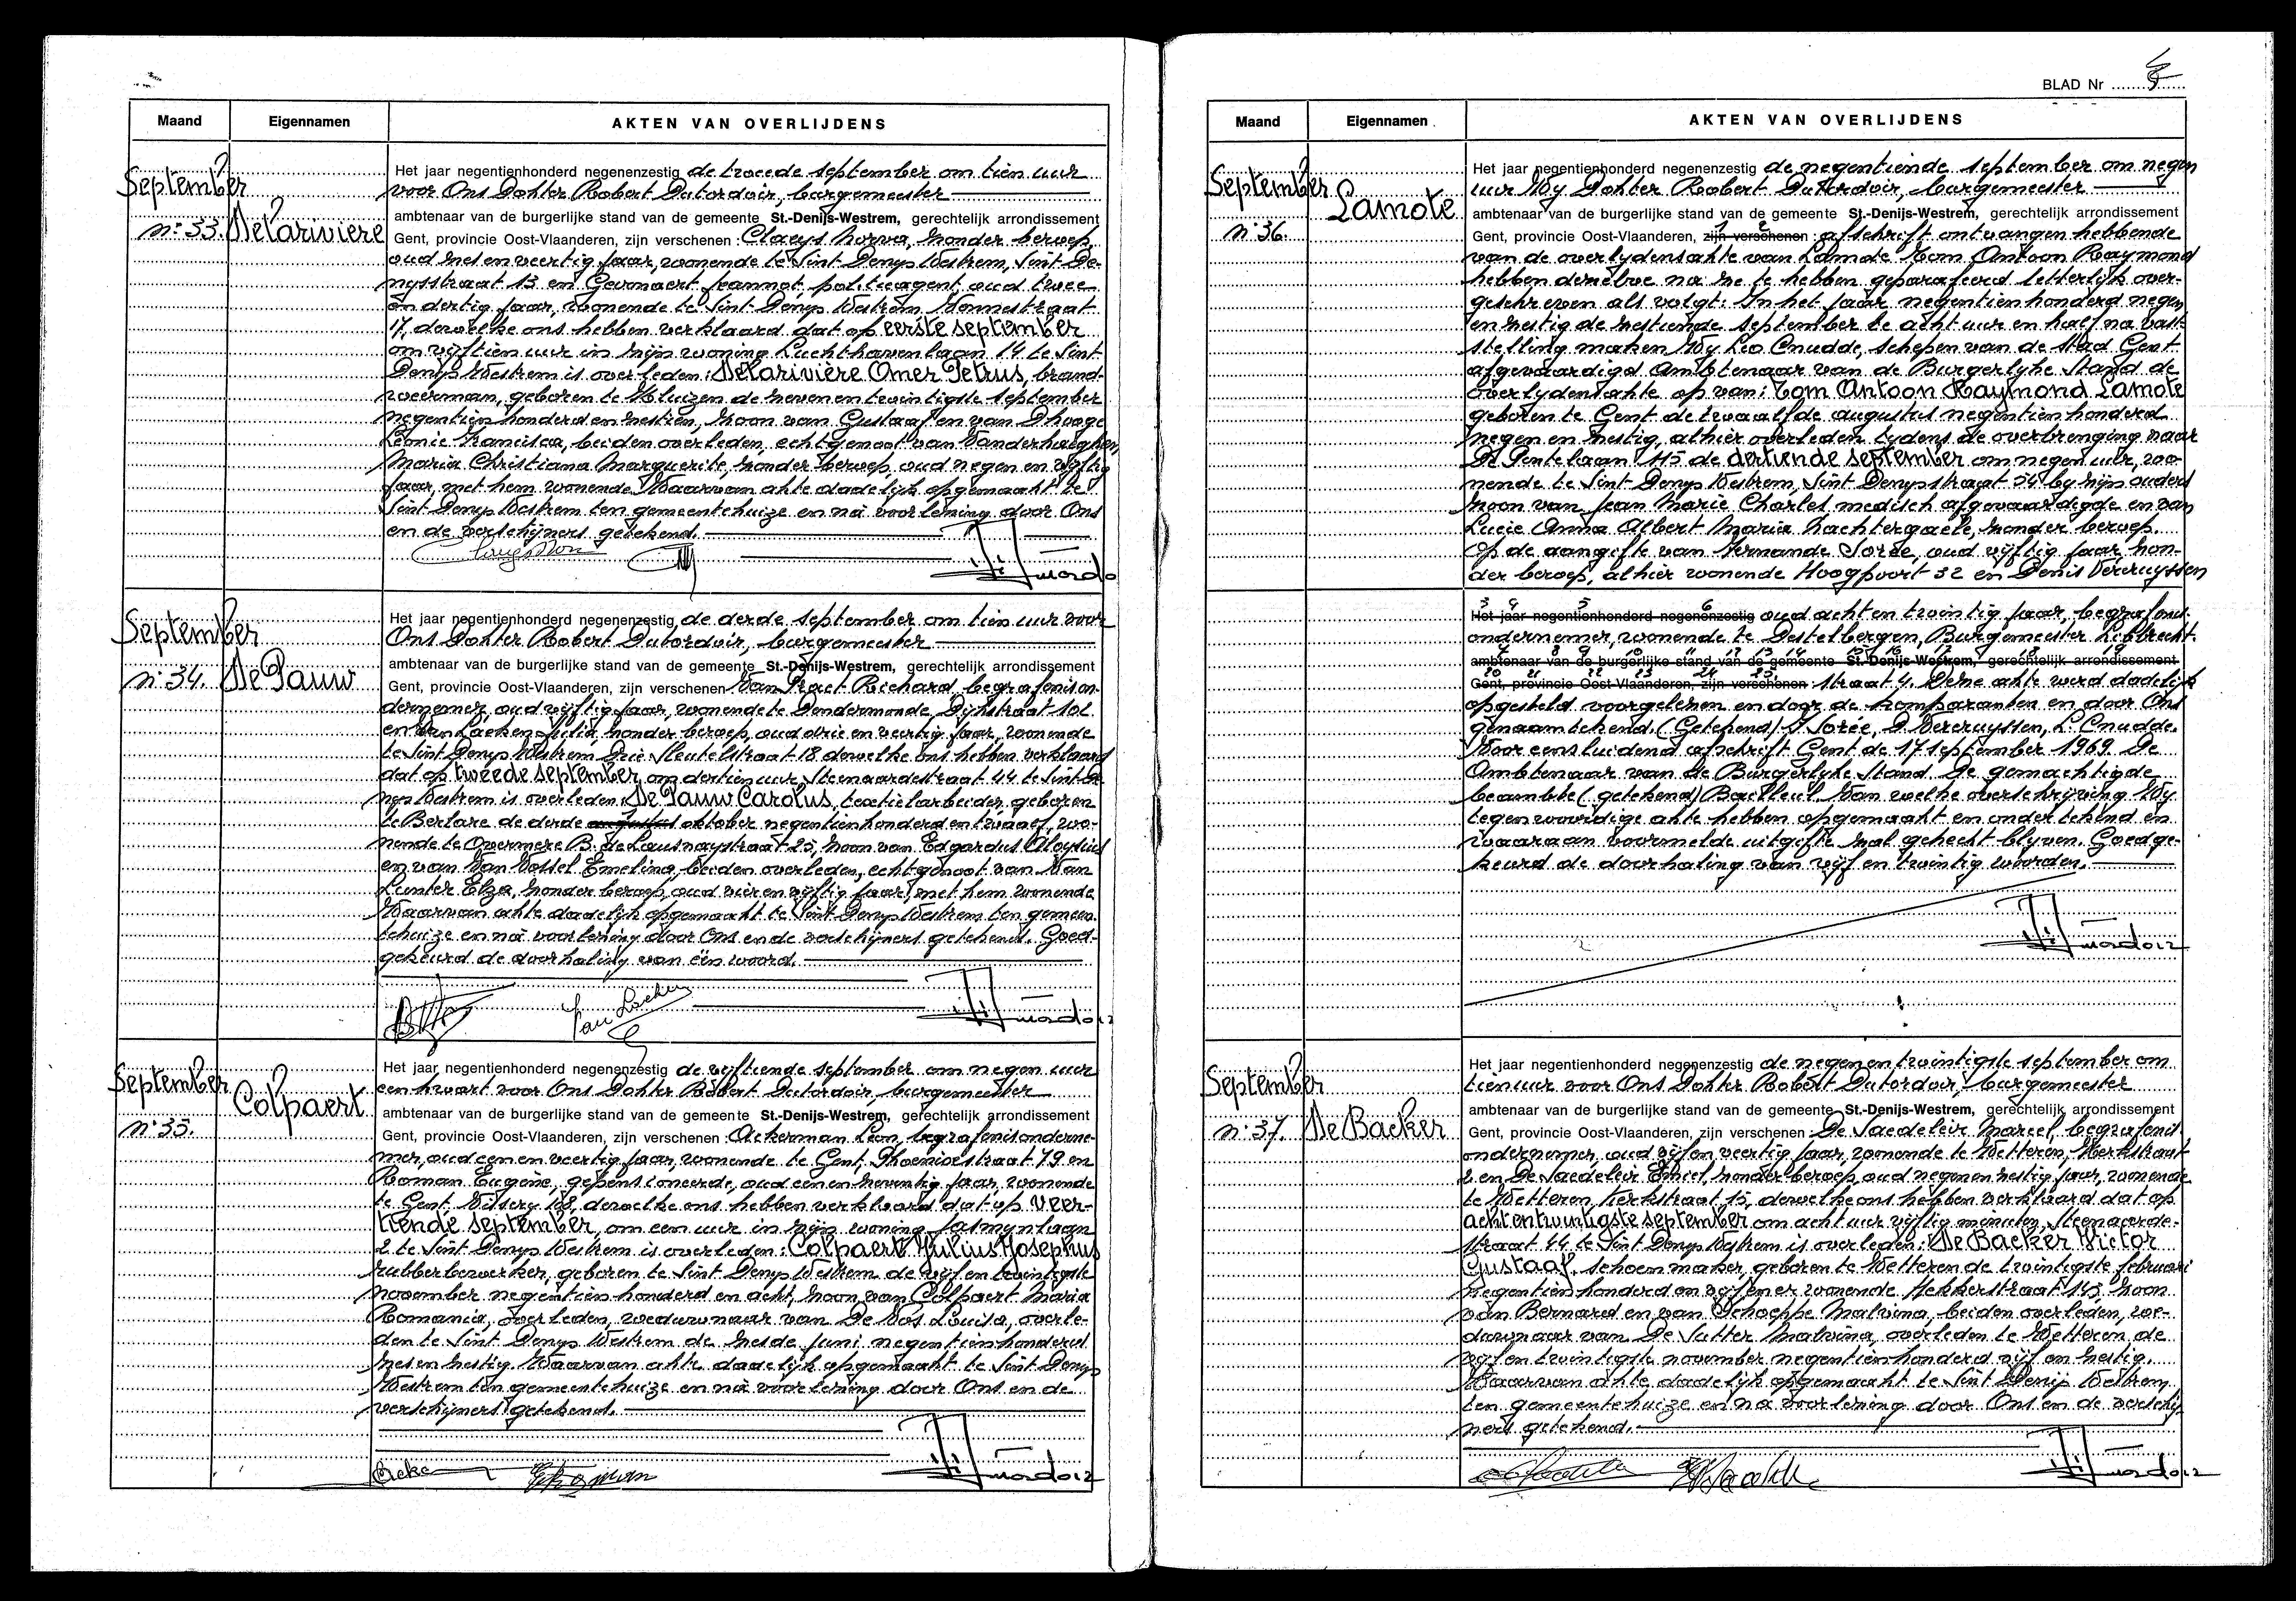 Maand Eigennamen AKTEN VAN OVERLIJDENS
September
n° 33. Delarivière
Het jaar negentienhonderd negenenzestig de tweede september om tien uur
voor Ons Dokter Robert Dutordoir, burgemeester
ambtenaar van de burgerlijke stand van de gemeente St.-Denijs-Westrem, gerechtelijk arrondissement
Gent, provincie Oost-Vlaanderen, zijn verschenen: Claeys Norva, zonder beroep,
oud zes en veertig jaar, wonende te Sint Denys Westrem, Sint De-
nysstraat 13 en Gevaert Jeannot politieagent, oud twee
en dertig jaar, wonende te Sint Denys Westrem Nonnestraat
17, dewelke ons hebben verklaard dat op eerste september
om vijftien uur in zijn woning Luchthavenlaan 14 te Sint
Denys Westrem is overleden: Delarivière Omer Petrus, brand-
weerman, geboren te Kluizen de zevenentwintigste september
negentien honderd en zestien, zoon van Gustaaf en van Dhooge
Leonie Francisca, beiden overleden, echtgenoot van Vanderhaeghen,
Maria Christiana Marguerite, zonder beroep, oud negen en vijftig
jaar, met hem wonende. Waarvan akte dadelijk opgemaakt te
Sint Denys Westrem ten gemeentehuize en na voorlezing door Ons
en de verschijners getekend.
September
n° 34. De Pauw
Het jaar negentienhonderd negenenzestig de derde september om tien uur voor
Ons Dokter Robert Dutordoir, burgemeester
ambtenaar van de burgerlijke stand van de gemeente St.-Denijs-Westrem, gerechtelijk arrondissement
Gent, provincie Oost-Vlaanderen, zijn verschenen Van Praet Richard, begrafenison-
dernemer, oud vijftig jaar, wonende te Dendermonde, Dijkstraat 102
en Van Laeken Julia, zonder beroep, oud drie en veertig jaar, wonende
te Sint Denys Westrem Drie Sleutelstraat 18 dewelke ons hebben verklaard
dat op tweede september om dertien uur, Steenaardestraat 44 te Sint De-
nys Westrem is overleden: De Pauw Carolus, textielarbeider, geboren
te Berlare de derde augustus oktober negentienhonderd en twaalf, wo-
nende te Overmere B. de Lausnaystraat 25, zoon van Edgardus Aloysius
en van Van Vossel Emelina, beiden overleden, echtgenoot van Van
Lunter Elza, zonder beroep, oud vier en vijftig jaar, met hem wonende
Waarvan akte dadelijk opgemaakt te Sint Denys Westrem ten gemeen-
tehuize en na voorlezing door Ons en de verschijners getekend. Goed-
gekeurd de doorhaling van één woord.
Van Laeken
September
n° 35. Colpaert
Het jaar negentienhonderd negenenzestig de vijftiende september om negen uur
een kwart voor Ons Dokter Robert Dutordoir, burgemeester
ambtenaar van de burgerlijke stand van de gemeente St.-Denijs-Westrem, gerechtelijk arrondissement
Gent, provincie Oost-Vlaanderen, zijn verschenen: Ackerman Leon, begrafenisonderne-
mer, oud een en veertig jaar, wonende te Gent, Phoenixstraat 79 en
Roman Eugène, gepensioneerde, oud een en zeventig jaar, wonende
te Gent Vissery 168, dewelke ons hebben verklaard dat op veer-
tiende september, om een uur in zijn woning Jasmynlaan
2 te Sint Denys Westrem is overleden: Colpaert Julius Josephus
rubberbewerker, geboren te Sint Denys Westrem de vijf en twintigste
november negentien honderd en acht, zoon van Colpaert Maria
Romania, overleden, weduwnaar van De Vos Louisa, overle-
den te Sint Denys Westrem de zesde juni negentienhonderd
zes en zestig. Waarvan akte dadelijk opgemaakt te Sint Denys
Westrem ten gemeentehuize en na voorlezing door Ons en de
verschijners getekend.
BLAD Nr
Maand Eigennamen AKTEN VAN OVERLIJDENS
September
n° 36. Lamote
Het jaar negentienhonderd negenenzestig de negentiende september om negen
uur Wy Dokter Robert Dutordoir, burgemeester
ambtenaar van de burgerlijke stand van de gemeente St.-Denijs-Westrem, gerechtelijk arrondissement
Gent, provincie Oost-Vlaanderen, zijn verschenen: afschrift ontvangen hebbende
van de overlydensakte van Lamote Tom Antoon Raymond
hebben dezelve na ze te hebben geparafeerd letterlijk over-
geschreven als volgt: In het jaar negentien honderd negen
en zestig de zestiende september te acht uur en half na vast-
stelling maken Wy Leo Cnudde, schepen van de stad Gent
afgevaardigd Ambtenaar van de Burgerlyke Stand de
overlydensakte op van: Tom Antoon Raymond Lamote
geboren te Gent de twaalfde augustus negentien honderd
negen en zestig, alhier overleden tydens de overbrenging naar
De Pintelaan 145 de dertiende september om negen uur, wo-
nende te Sint Denys Westrem, Sint Denysstraat 54 by zijn ouders
zoon van Jean Marie Charles medisch afgevaardigde en van
Lucie Anna Albert Maria Hachtergaele, zonder beroep.
Op de aangifte van Fernande Sorée, oud vijftig jaar, zon-
der beroep, alhier wonende Hoogpoort 32 en Denis Vercruyssen
3 4 5 6
Het jaar negentienhonderd negenenzestig oud acht en twintig jaar, begrafenis-
ondernemer, wonende te Destelbergen, Burgemeester Liebrecht-
7 8 9 10 11 12 13 14 15 16 17 18 19
ambtenaar van de burgerlijke stand van de gemeente St.-Denijs-Westrem, gerechtelijk arrondissement
20 21 22 23 24 25
Gent, provincie Oost-Vlaanderen, zijn verschenen: straat 4. Deze akte werd dadelijk
opgesteld voorgelezen en door de komparanten en door Ons
genaamtekend (Getekend) F Sorée, D. Vercruyssen, L. Cnudde.
Voor eensluidend afschrift Gent de 17 september 1969. De
Ambtenaar van de Burgerlyke Stand. De gemachtigde
beambte (getekend) Bailleul. Van welke overschrijving Wy
tegenwoordige akte hebben opgemaakt en ondertekend en
waaraan voormelde uitgifte zal gehecht blyven. Goedge-
keurd de doorhaling van vijf en twintig woorden.
September
n° 37. De Backer
Het jaar negentienhonderd negenenzestig de negenentwintigste september om
tien uur voor Ons Dokter Robert Dutordoir, burgemeester
ambtenaar van de burgerlijke stand van de gemeente St.-Denijs-Westrem, gerechtelijk arrondissement
Gent, provincie Oost-Vlaanderen, zijn verschenen: De Saedeleir Marcel, begrafenis-
ondernemer, oud vijf en veertig jaar, wonende te Wetteren, Kerkstraat
2 en De Saedeleir Emiel, zonder beroep, oud negen en zestig jaar, wonende
te Wetteren, Kerkstraat 15, dewelke ons hebben verklaard dat op
achtentwintigste september om acht uur vijftig minuten, Steenaarde-
straat 44 te Sint Denys Westrem is overleden: De Backer Victor
Gustaaf, schoenmaker, geboren te Wetteren de twintigste februari
negentien honderd en vijf en er wonende Hekkerstraat 143, zoon
van Bernard en van Schoeppe Malvina, beiden overleden, we-
duwnaar van De Sutter Malvina, overleden te Wetteren de
vijf en twintigste november negentienhonderd vijf en zestig.
Waarvan akte dadelijk opgemaakt te Sint Denijs Westrem
ten gemeentehuize en na voorlezing door Ons en de verschij-
ners getekend.